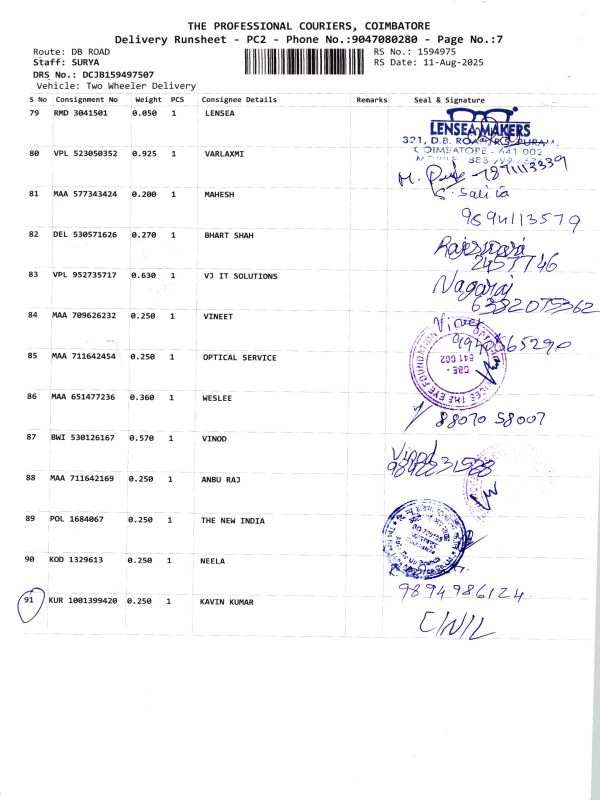 THE PROFESSIONAL COURIERS, COIMBATORE
Delivery Runsheet - PC2 - Phone No.:9047080280 - Page No.:7
Route: DB ROAD RS No.: 1594975
Staff: SURYA RS Date: 11-Aug-2025
DRS No.: DCJB159497507
Vehicle: Two Wheeler Delivery
S No Consignment No Weight PCS Consignee Details Remarks Seal & Signature
79 RMD 3041501 0.050 1 LENSEA
LENSEA MAKERS
321, D.B. ROAD, R.S. PURAM,
COIMBATORE - 641 002
80 VPL 523050352 0.925 1 VARLAXMI
81 MAA 577343424 0.200 1 MAHESH
9894113579
82 DEL 530571626 0.270 1 BHART SHAH
2457746
83 VPL 952735717 0.630 1 VJ IT SOLUTIONS
Nagaraj
6382075362
84 MAA 709626232 0.250 1 VINEET
Vineet
85 MAA 711642454 0.250 1 OPTICAL SERVICE
THE EYE FOUNDATION
CBE -
641 002
86 MAA 651477236 0.360 1 WESLEE
88070 58007
87 BWI 530126167 0.570 1 VINOD
Vinod
88 MAA 711642169 0.250 1 ANBU RAJ
89 POL 1684067 0.250 1 THE NEW INDIA
90 KOD 1329613 0.250 1 NEELA
9894986124
91 KUR 1001399420 0.250 1 KAVIN KUMAR
C/N/L